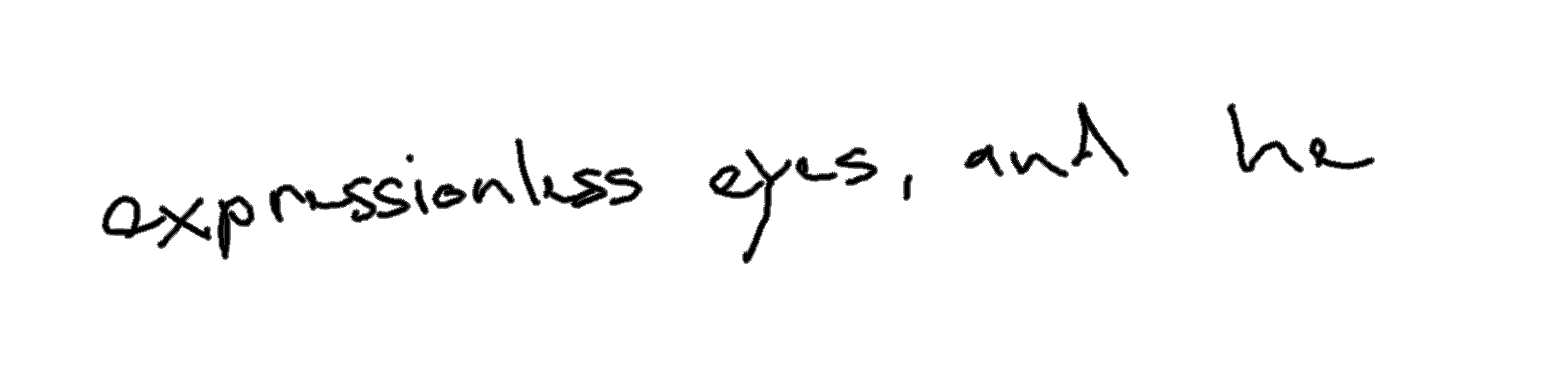 expressionless eyes, and he